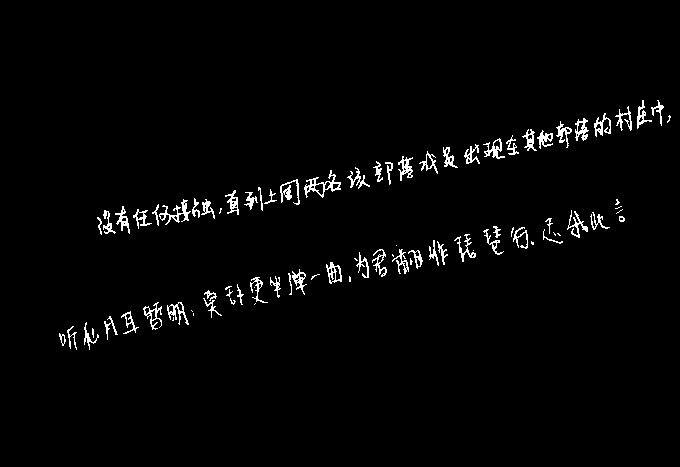 没有任何接触,直到上周两名该部落成员出现在其他部落的村庄中,
听私月耳暂明:莫辞更坐弹一曲,为君翻作琵琶行.感我此言